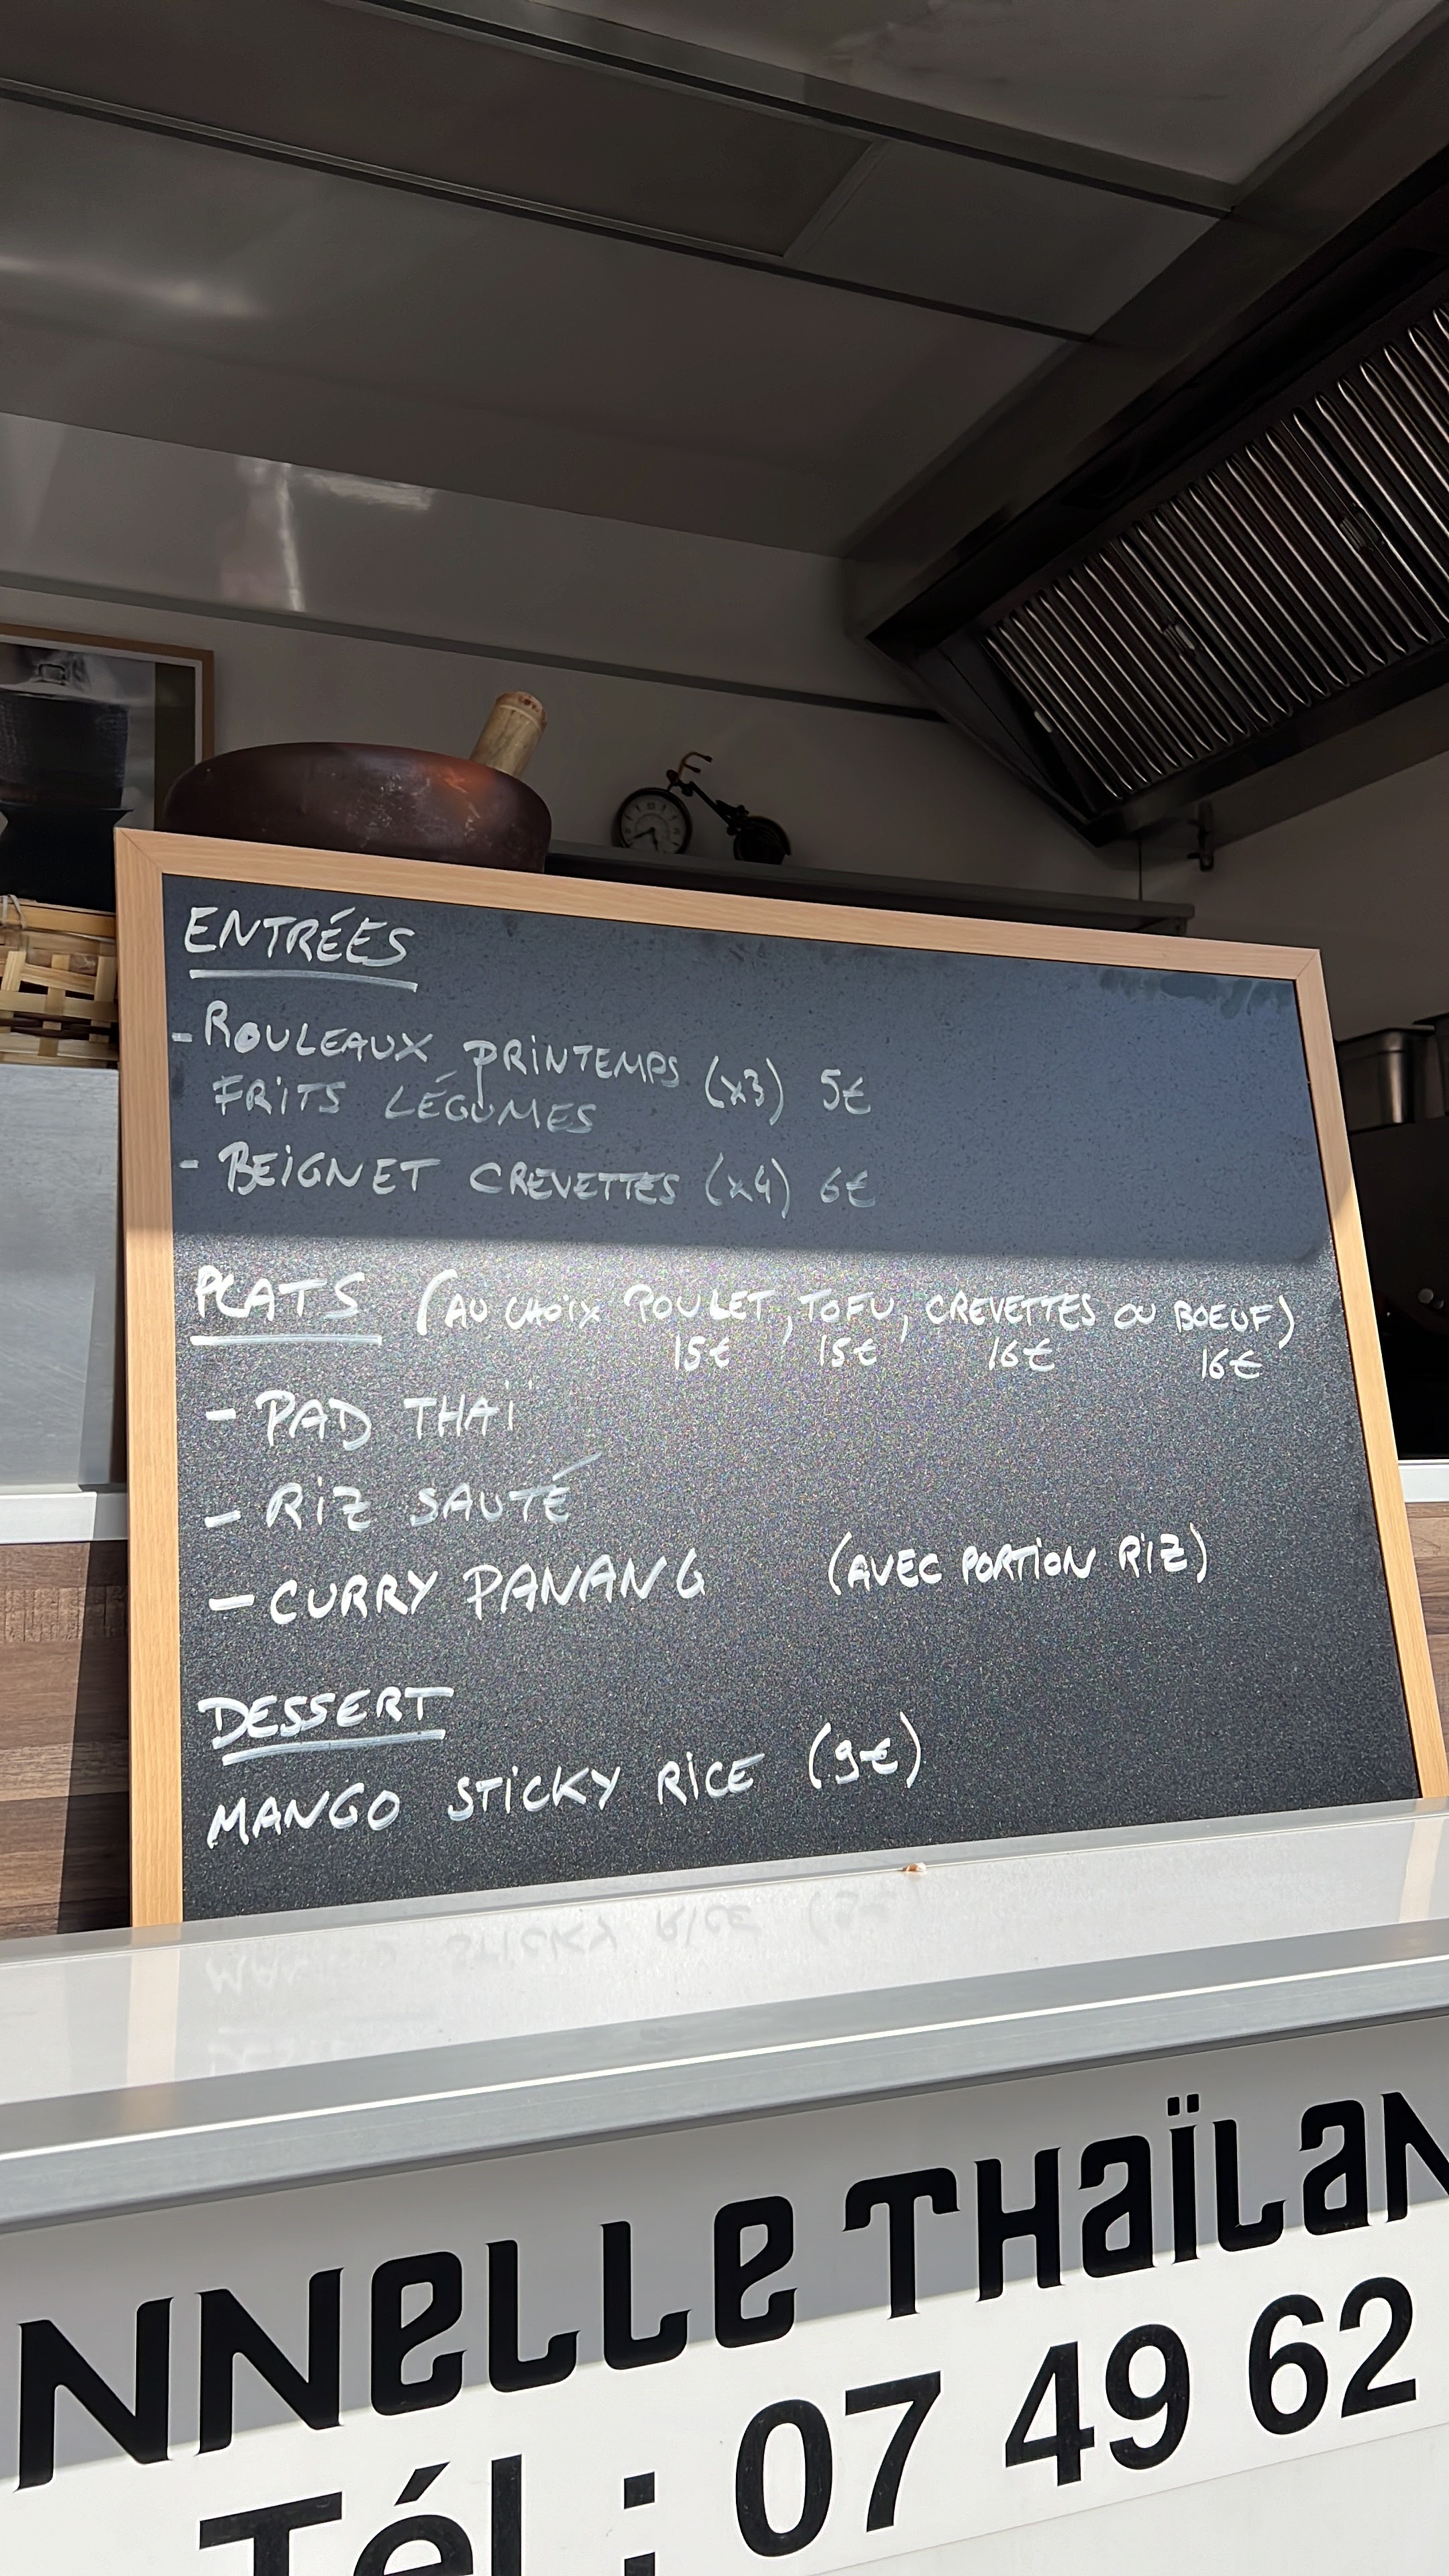 ENTRÉES
- ROULEAUX PRINTEMPS
FRITS LÉGUMES (x3) 5€
- BEIGNET CREVETTES (x4) 6€
PLATS (AU CHOIX POULET, TOFU, CREVETTES OU BOEUF)
15€ 15€ 16€ 16€
- PAD THAÏ
- RIZ SAUTÉ
- CURRY PANANG (AVEC PORTION RIZ)
DESSERT
MANGO STICKY RICE (9€)
NNELLE THAÏLAN
Tél : 07 49 62